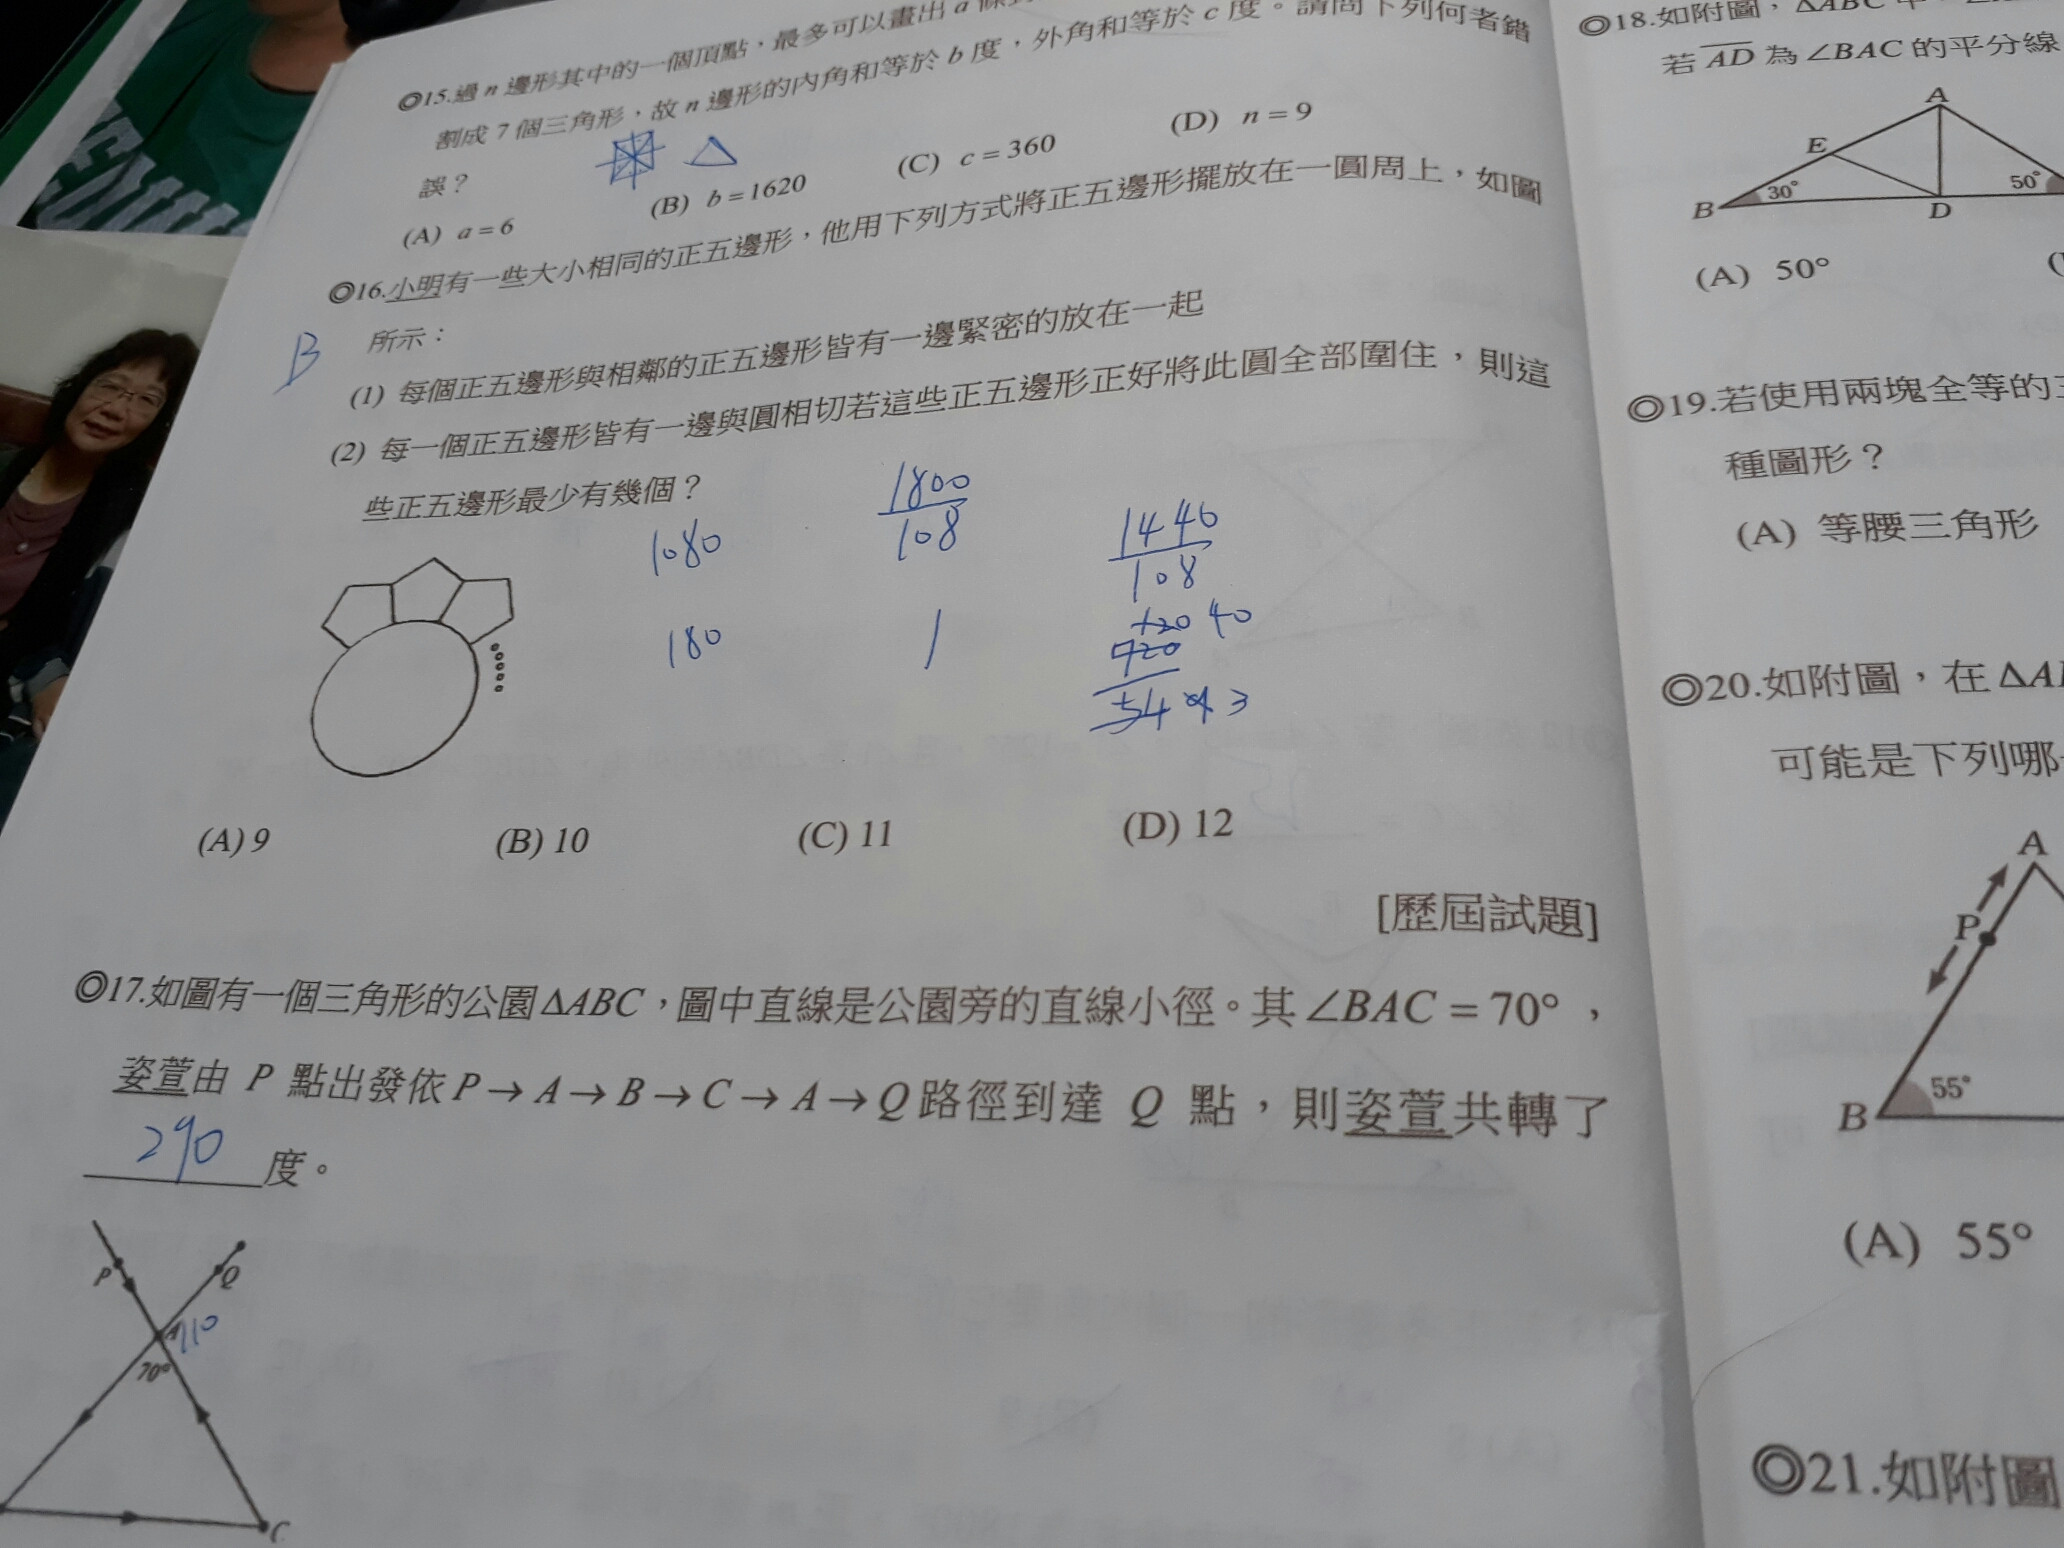 ◎15.過 n 邊形其中的一個頂點，最多可以畫出 a 條
割成 7 個三角形，故 n 邊形的內角和等於 b 度，外角和等於 c 度。請問下列何者錯
誤？
(A) a = 6
(B) b = 1620
(C) c = 360
(D) n = 9
◎16.小明有一些大小相同的正五邊形，他用下列方式將正五邊形擺放在一圓周上，如圖
B
所示：
(1) 每個正五邊形與相鄰的正五邊形皆有一邊緊密的放在一起
(2) 每一個正五邊形皆有一邊與圓相切若這些正五邊形正好將此圓全部圍住，則這
些正五邊形最少有幾個？
1080
1800
108
1440
108
180
1
120 40
720
54
3
(A) 9
(B) 10
(C) 11
(D) 12
[歷屆試題]
◎17.如圖有一個三角形的公園 ΔABC，圖中直線是公園旁的直線小徑。其 ∠BAC = 70°，
姿萱由 P 點出發依 P → A → B → C → A → Q 路徑到達 Q 點，則姿萱共轉了
290 度。
P
Q
A
110
70°
C
◎18.如附圖，ΔABC 中，
若 AD 為 ∠BAC 的平分線
A
E
30°
50°
B
D
(A) 50°
◎19.若使用兩塊全等的三
種圖形？
(A) 等腰三角形
◎20.如附圖，在 ΔA
可能是下列哪
A
P
55°
B
(A) 55°
◎21.如附圖